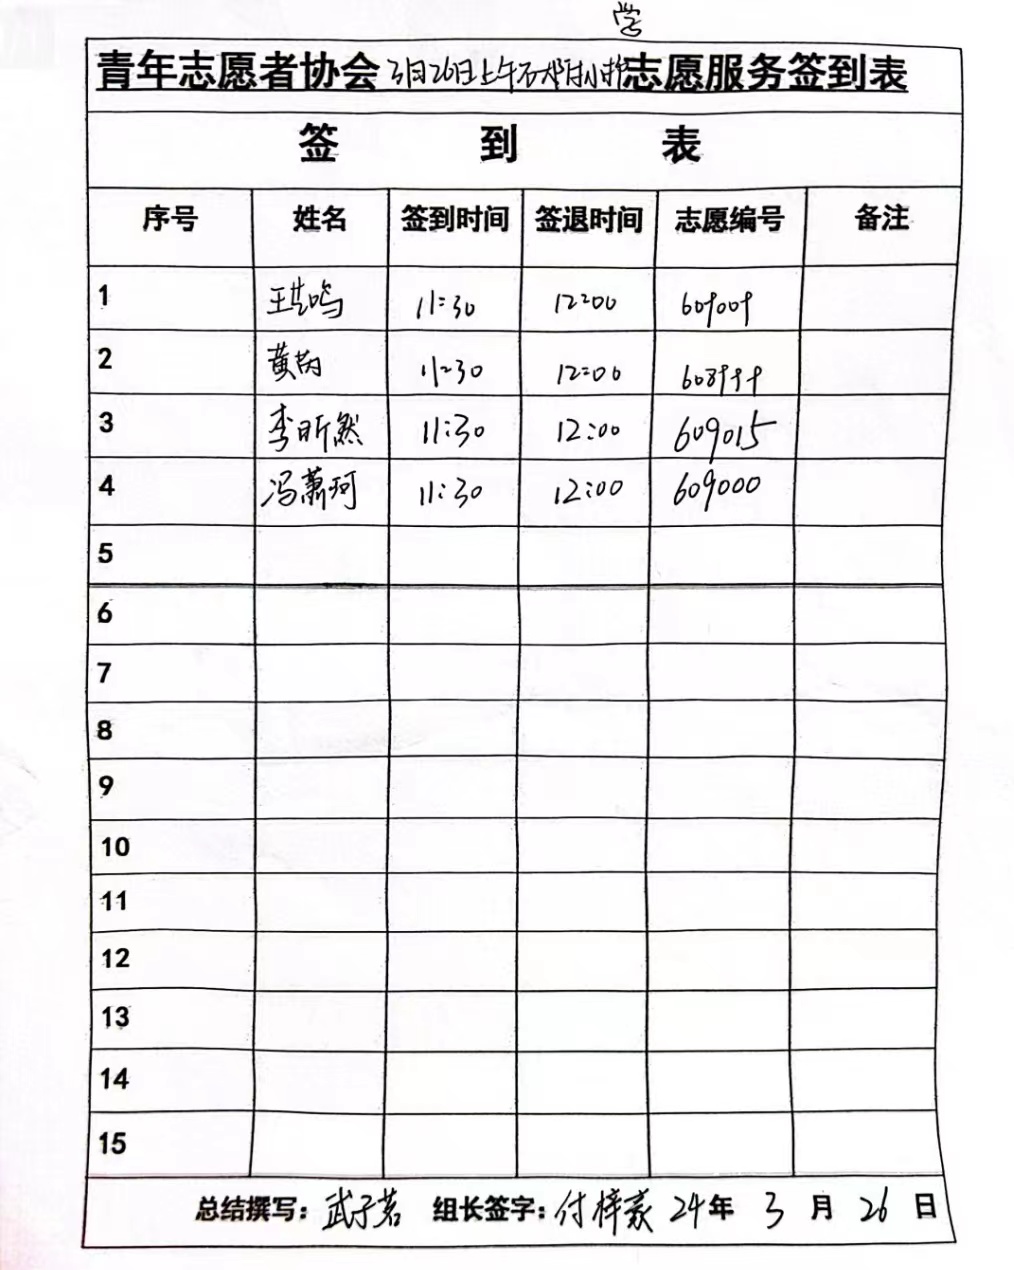 学
青年志愿者协会3月26日上午石邓附小 志愿服务签到表
签 到 表
序号 姓名 签到时间 签退时间 志愿编号 备注
1 王芸鸣 11:30 12:00 609009
2 黄芮 11:30 12:00 608999
3 李昕然 11:30 12:00 609015
4 冯萧珂 11:30 12:00 609000
5
6
7
8
9
10
11
12
13
14
15
总结撰写：武子茗 组长签字：付梓豪 24年 3 月 26 日